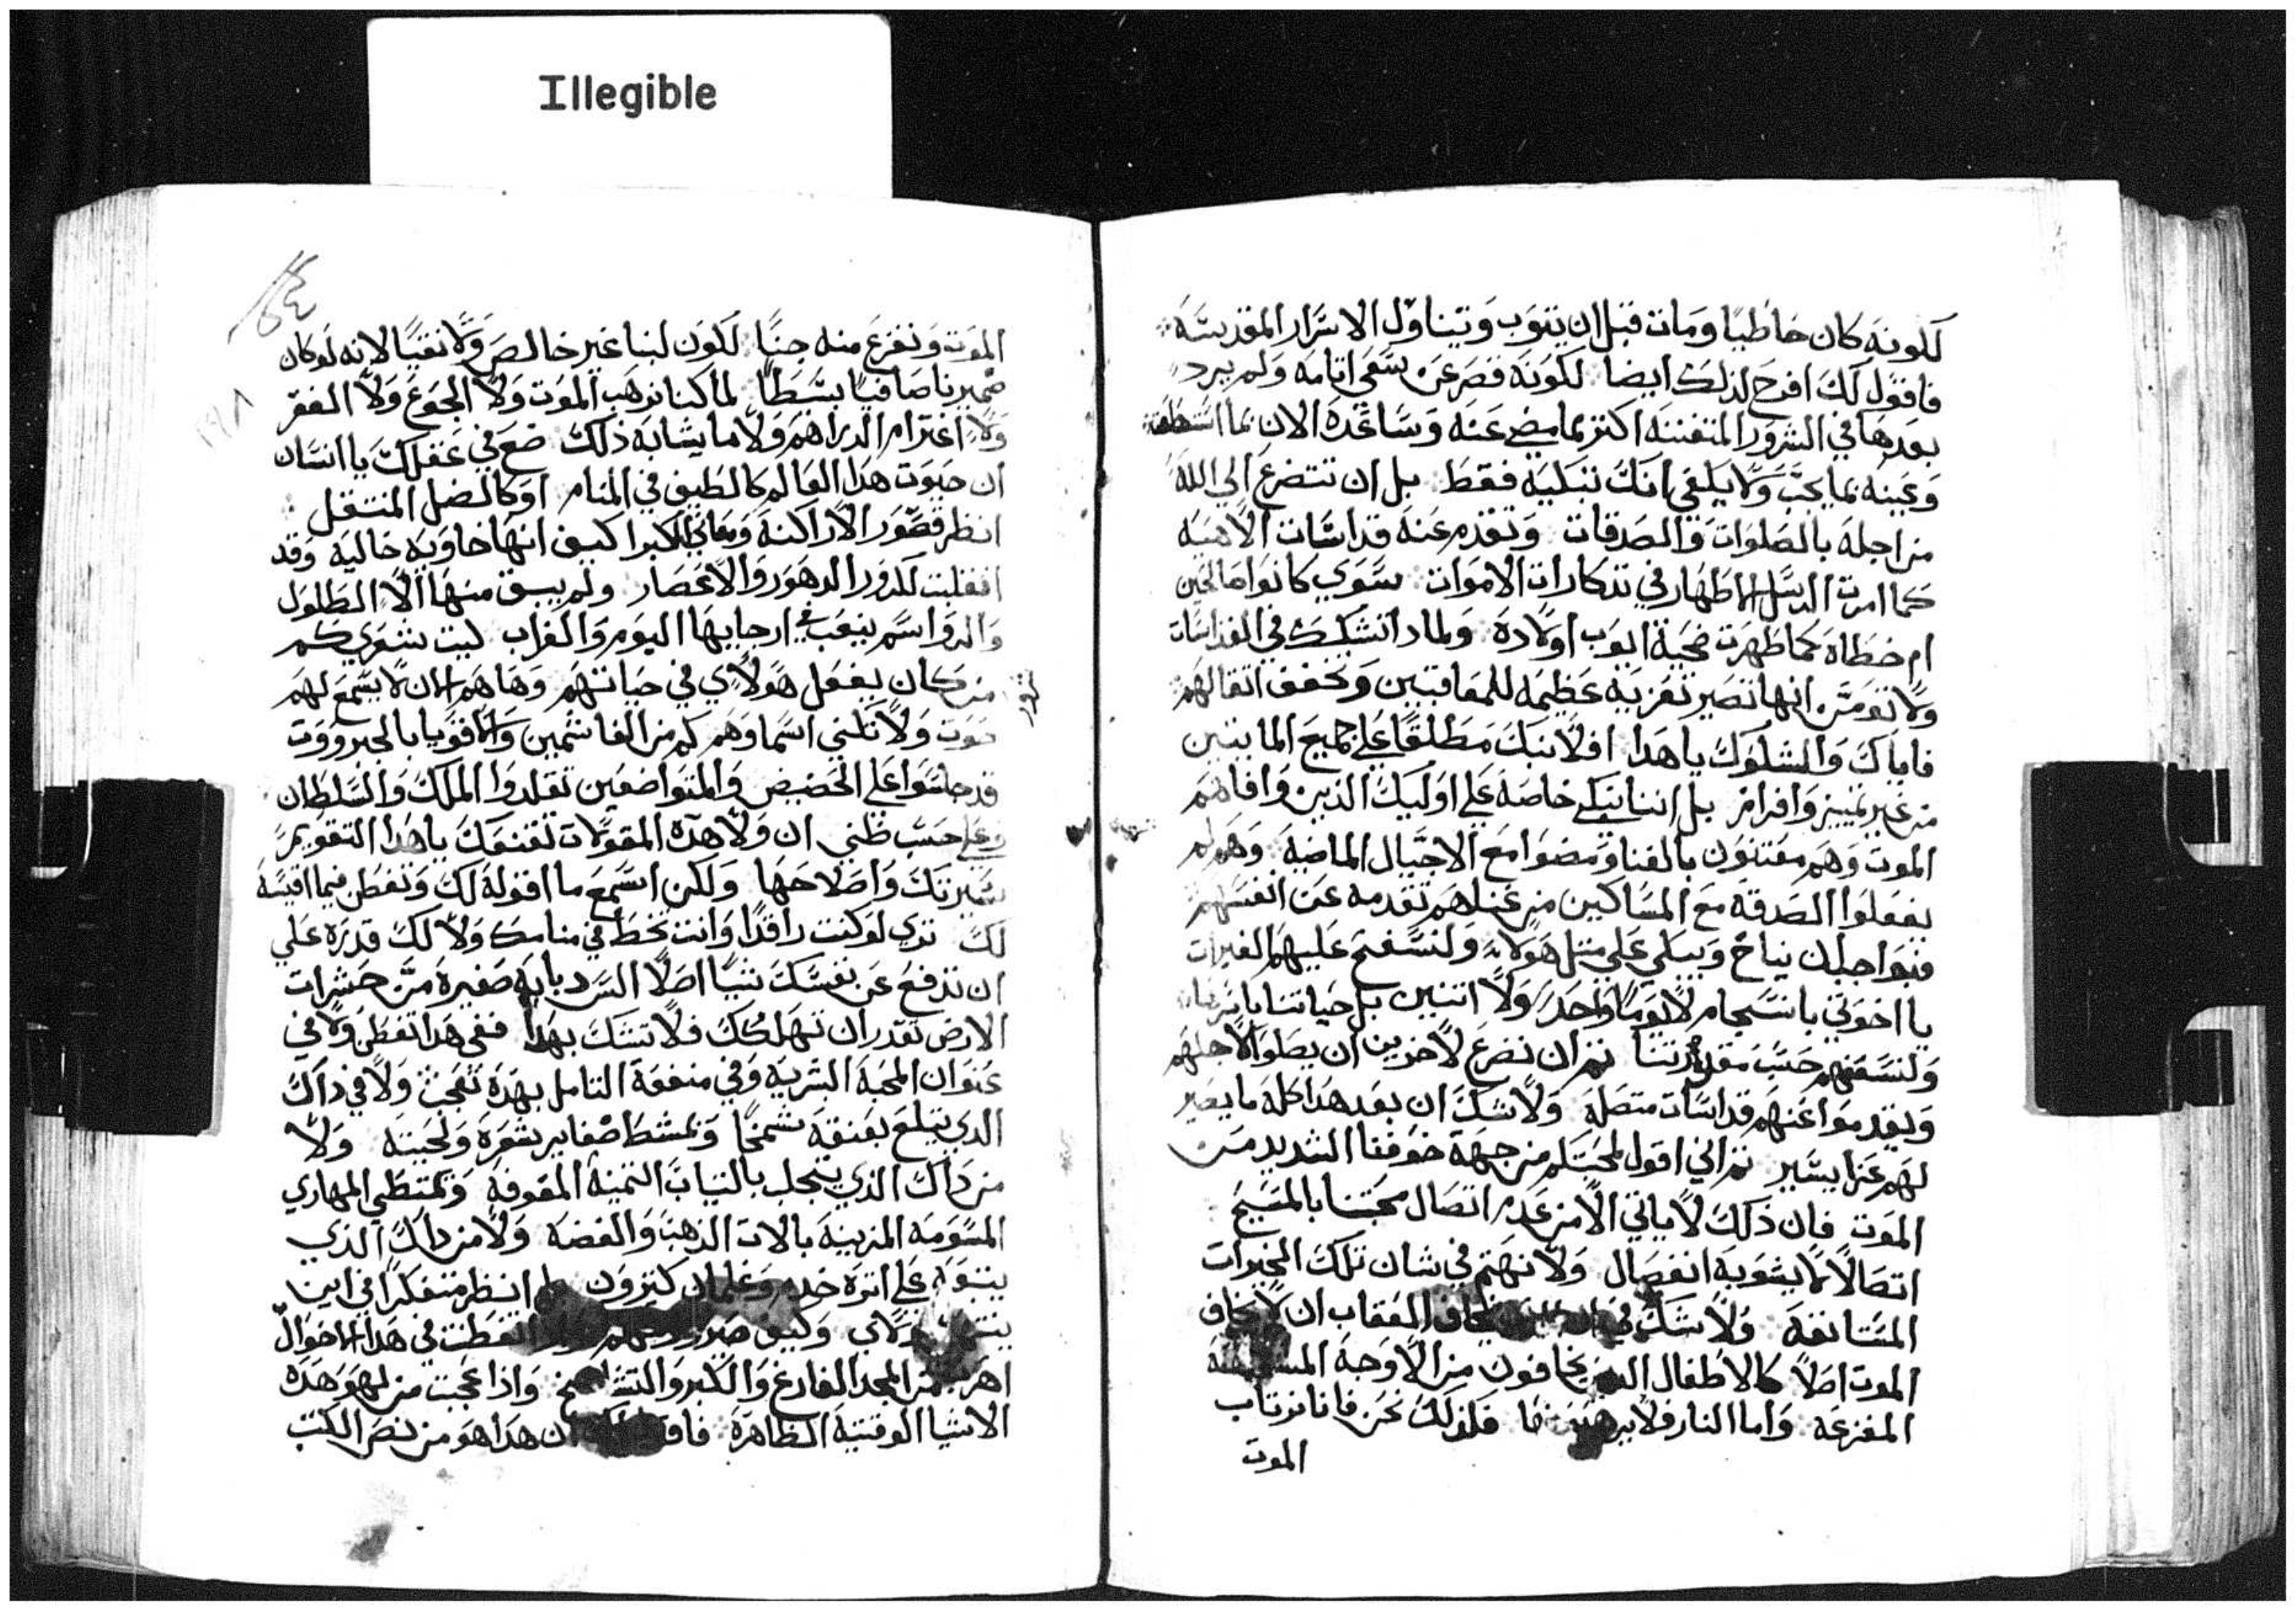 Illegible
لكونه كان خاطيًا ومات قبل ان يتوب ويتناول الاسرار المقدسة
فاقول لك افرح لذلك ايضا لكونه قصر عن سعي اتامه ولم يرد
بعدها في الشرور المتفننه اكثر مما مضي عنه وساعده الان بما
وعينه بما يحب ولا يلفي انك تبكيه فقط بل ان تتضرع الي الله
من اجله بالصلوات والصدقات وتقدم عنه قداسات الاهيه
كما امرت الرسل الاطهار في تذكارات الاموات سوي كانوا صالحين
ام خطاه كما طهرت ضحية ايوب اولاده ولمادا تشكك في القداسات
ولا تومن انها تصير تعزيه عظيمه للمعاقبين وتخفف اتقالهم
فاياك والشلوك يا هدا افلا نبك مطلقًا علي جميع المايتين
من غير تمييز وافراز بل اننا نبكي خاصه علي اوليك الذين وافاهم
الموت وهم مفتنون بالغنا ومضوا مع الاجيال الماضيه وهم لم
يفعلوا الصدقه مع المساكين من غناهم تقدمه عن انفسهم
فبواجبك نياح ويبكي علي متل هولاء ولنسفح عليهم العبرات
يا اخوتي بانسجام لا يومًا واحدًا ولا اتنين بل حياتنا باترها
ولنسعفهم حسب مقدرتنا تم ان نضرع لاخرين ان يصلوا لاجلهم
ويقدموا عنهم قداسات متصله ولا شك ان بعد هدا كله ما يصير
لهم عزا يسير تم اني اقول لمحبتكم من جهة خوفنا الشديد من
الموت فان ذلك لا ياتي الا من عدم اتصال محبتنا بالمسيح
اتصالًا لا يشوبه انفصال ولا نهتم في شان تلك الخيرات
المستانفه ولا شك العقاب ان لا يخاف
الموت اصلًا كالاطفال يخافون من الاوجه
المفزعه واما النار فلا فلذلك نحن فانا نرتاب
الموت
الموت ونفزع منه جبنًا لكون لبنا غير خالص ولا نقيًا لانه لو كان
ضميرنا صافيًا بسطًا لما كنا نرهب الموت ولا الجوع ولا الفقر
ولا اغترام الدراهم ولا ما يشابه ذلك ضع في عقلك يا انسان
ان حيوت هدا العالم كالطيف في المنام او كالضل المنتقل
انظر قصور الاراكنه ومعاني الكبرا كيف انها خاويه خاليه وقد
انقلبت لكدور الدهور والاعصار ولم يبق منها الا الطلول
والدواسم ينعب في ارجايها اليوم والغراب ليت شعري كم
من كان يفعل هولاي في حياتهم وها هم الان لا يسمع لهم
صوت ولا تلني اسما وهم كم من الغاشمين والاقويا بالجبرووت
قد جلسوا علي الحضيض والمتواضعين تقلدوا الملك والسلطان
وعلي حسب ظني ان ولا هده المقولات تقنفك يا هدا لتقويم
سيرتك واصلاحها ولكن اسمع ما اقوله لك وتفطن فيما اقيسه
لك تري لو كنت راقدًا وانت تخط في منامك ولا لك قدره علي
ان تدفع عن نفسك شيًا اصلًا السر دبابه صغيره من حشرات
الارض تقدر ان تهلكك فلا تشك بهدا ففي هدا تفطن ولا في
عنوان المحبة البشريه وفي منفعة التامل بهده تعجب ولا في داك
الدي يتلع بعنقه شمخًا ويمشط ضفاير شعره ولحيته ولا
من داك الذي يتجلب بالتياب التمينه المفوفه ويمتطي المهاري
المسومه المزينه بالات الدهب والفضه ولا من داك الذي
يتبعه علي اتره خدم وغلمان كتيرون انظر متفكرًا في اين
هولاي وكيف تفطنت في هدا الاحوال
من المجد الفارغ والكبر واذا عجبت من لهو هده
الاشيا الوقتيه الظاهره ان هدا هو من نص الكتب